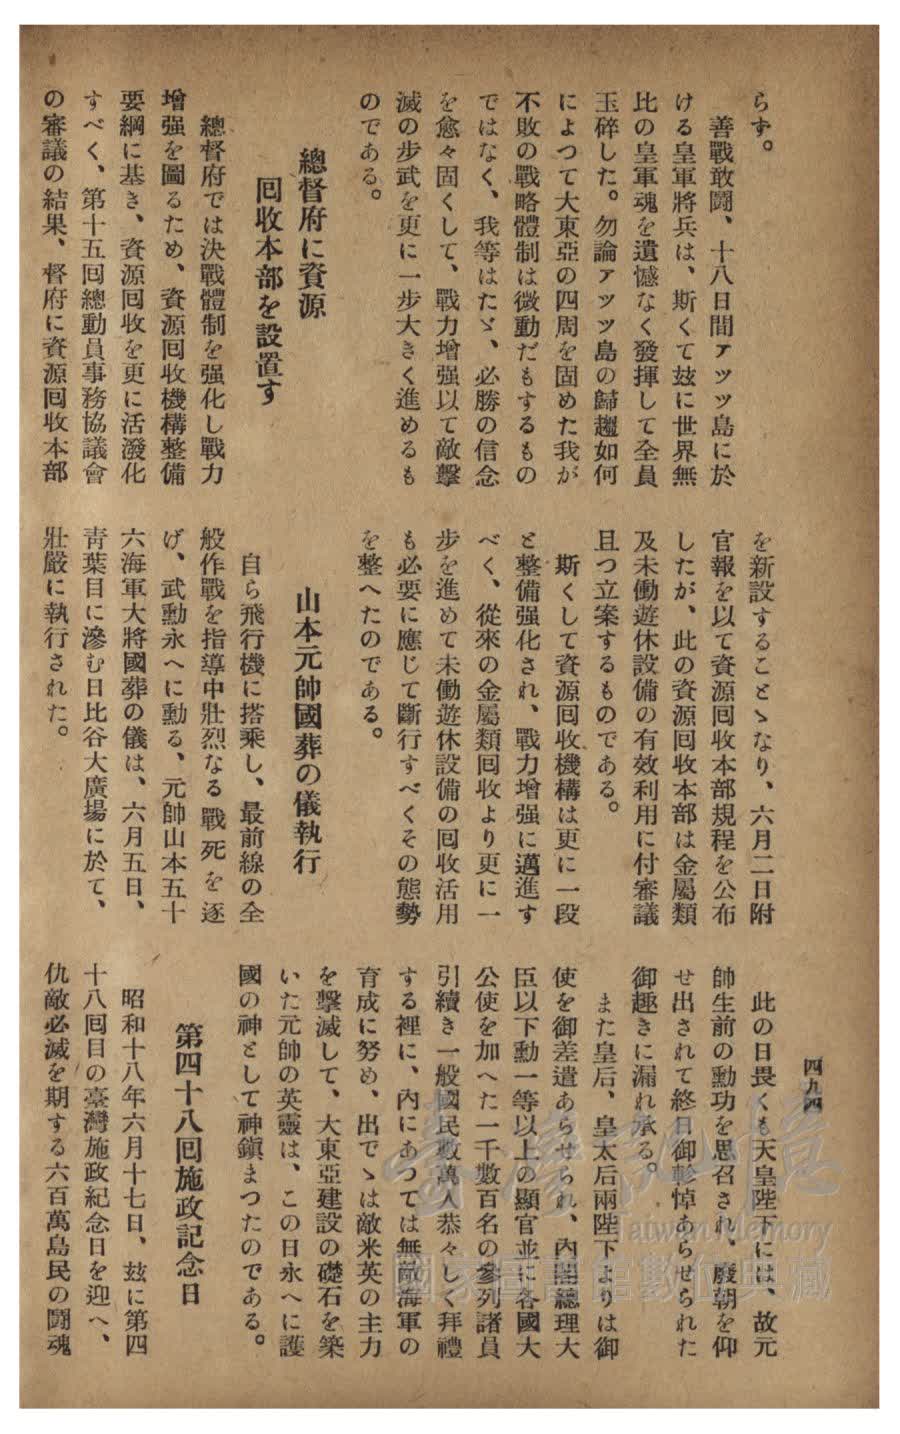 四九四
らず。
善戰敢鬪、十八日間アッツ島に於
ける皇軍將兵は、斯くて玆に世界無
比の皇軍魂を遺憾なく發揮して全員
玉碎した。勿論アッツ島の歸趨如何
によつて大東亞の四周を固めた我が
不敗の戰略體制は微動だもするもの
ではなく、我等はたゞ、必勝の信念
を愈々固くして、戰力增强以て敵擊
滅の步武を更に一步大きく進めるも
のである。
總督府に資源
回收本部を設置す
總督府では決戰體制を强化し戰力
增强を圖るため、資源回收機構整備
要綱に基き、資源回收を更に活潑化
すべく、第十五回總動員事務協議會
の審議の結果、督府に資源回收本部
を新設することゝなり、六月二日附
官報を以て資源回收本部規程を公布
したが、此の資源回收本部は金屬類
及未働遊休設備の有效利用に付審議
且つ立案するものである。
斯くして資源回收機構は更に一段
と整備强化され、戰力增强に邁進す
べく、從來の金屬類回收より更に一
步を進めて未働遊休設備の回收活用
も必要に應じて斷行すべくその態勢
を整へたのである。
山本元帥國葬の儀執行
自ら飛行機に搭乘し、最前線の全
般作戰を指導中壯烈なる戰死を逐
げ、武勳永へに勳る、元帥山本五十
六海軍大將國葬の儀は、六月五日、
靑葉目に滲む日比谷大廣場に於て、
壯嚴に執行された。
此の日畏くも天皇陛下には、故元
帥生前の勳功を思召され、廢朝を仰
せ出されて終日御軫悼あらせられた
御趣きに漏れ承る。
また皇后、皇太后兩陛下よりは御
使を御差遣あらせられ、內閣總理大
臣以下勳一等以上の顯官並に各國大
公使を加へた一千數百名の參列諸員
引續き一般國民數萬人恭々しく拜禮
する裡に、內にあつては無敵海軍の
育成に努め、出でゝは敵米英の主力
を擊滅して、大東亞建設の礎石を築
いた元帥の英靈は、この日永へに護
國の神として神鎭まつたのである。
第四十八回施政記念日
昭和十八年六月十七日、玆に第四
十八回目の臺灣施政紀念日を迎へ、
仇敵必滅を期する六百萬島民の鬪魂
臺灣記憶
Taiwan Memory
國家圖書館數位典藏